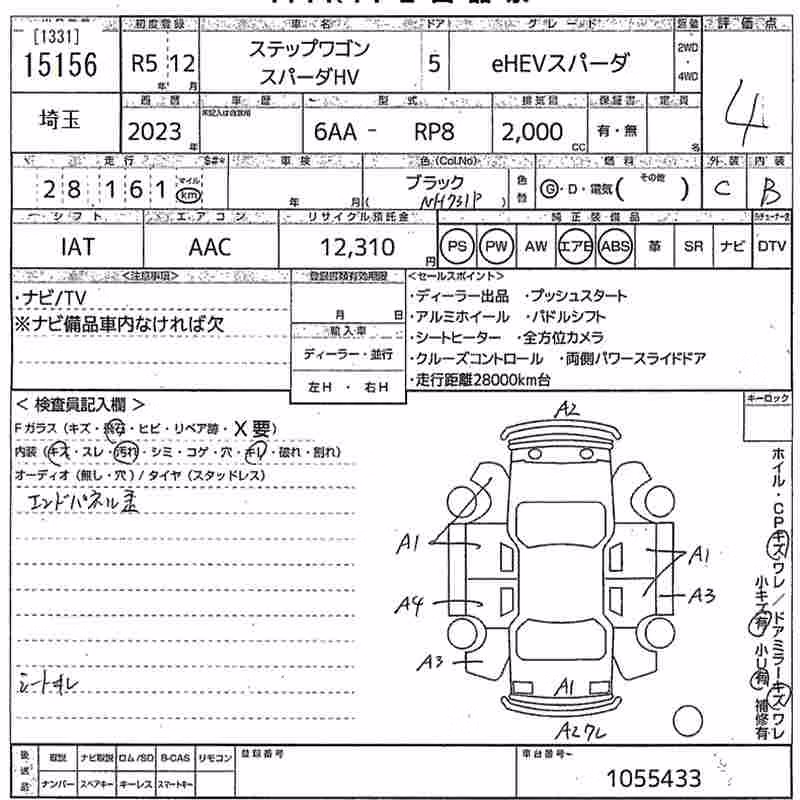 [1331]
15156
初度登録 車名 ドア グレード 駆動 評価点
R5 12 年 月
ステップワゴン
スパーダHV
5
eHEVスパーダ
2WD
・
4WD
4
埼玉
西暦 車歴 型式 排気量 保証書 定員
2023 年
未記入は自家用
6AA - RP8
2,000 CC
有・無
名
走行 車検 色(Col.No) 燃料 外装 内装
28161 マイル km
年 月
ブラック
NH731P
色替
G・D・電気( その他 )
C
B
シフト エアコン リサイクル預託金 純正装備品
IAT
AAC
12,310 円
PS PW AW エアB ABS 革 SR ナビ DTV
<注意事項> 登録書類有効期限 <セールスポイント>
・ナビ/TV
※ナビ備品車内なければ欠
月 日
輸入車
ディーラー・並行
左H ・ 右H
・ディーラー出品 ・プッシュスタート
・アルミホイール ・パドルシフト
・シートヒーター ・全方位カメラ
・クルーズコントロール ・両側パワースライドドア
・走行距離28000km台
< 検査員記入欄 >
キーロック
Fガラス (キズ・飛石・ヒビ・リペア跡・X要)
内装 (キズ・スレ・汚れ・シミ・コゲ・穴・キレ・破れ・割れ)
オーディオ (無し・穴) / タイヤ (スタッドレス)
エンドパネル歪
シートキレ
A2
A1
A1
A4
A3
A3
A1
A2ワレ
ホイル・CPキズワレ/ドアミラーキズワレ
小キズ有 小U有 補修有
後送品
取説 ナビ取説 ロム/SD B-CAS リモコン
ナンバー スペアキー キーレス スマートキー
登録番号
車台番号
1055433